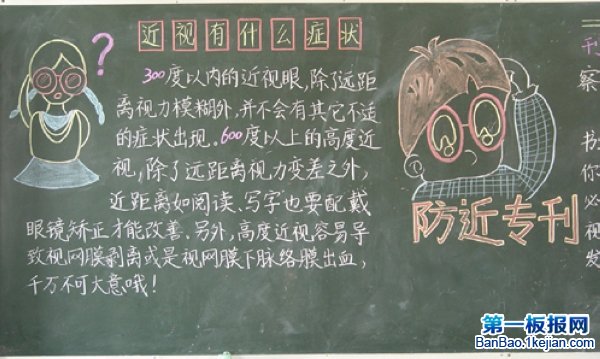 ?
近视有什么症状
300度以内的近视眼,除了远距
离视力模糊外,并不会有其它不适
的症状出现。600度以上的高度近
视,除了远距离视力变差之外,
近距离如阅读、写字也要配戴
眼镜矫正才能改善。另外,高度近视容易导
致视网膜剥离或是视网膜下脉络膜出血,
千万不可大意哦!
防近专刊
察
你
必
视
发
第一板报网
BanBao.1kejian.com